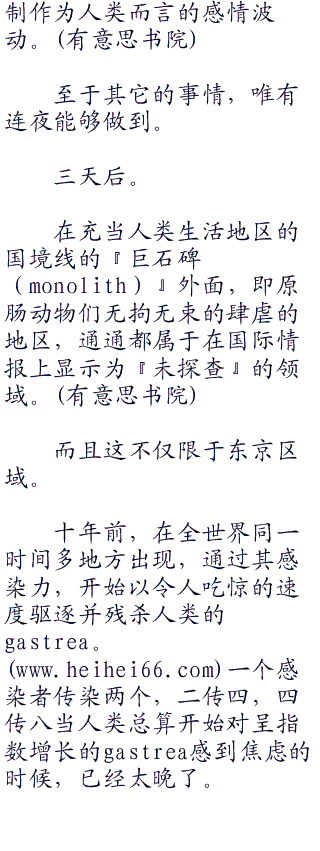 制作为人类而言的感情波
动。(有意思书院)
至于其它的事情，唯有
连夜能够做到。
三天后。
在充当人类生活地区的
国境线的『巨石碑
（monolith）』外面，即原
肠动物们无拘无束的肆虐的
地区，通通都属于在国际情
报上显示为『未探查』的领
域。(有意思书院)
而且这不仅限于东京区
域。
十年前，在全世界同一
时间多地方出现，通过其感
染力，开始以令人吃惊的速
度驱逐并残杀人类的
gastrea。
(www.heihei66.com)一个感
染者传染两个，二传四，四
传八当人类总算开始对呈指
数增长的gastrea感到焦虑的
时候，已经太晚了。